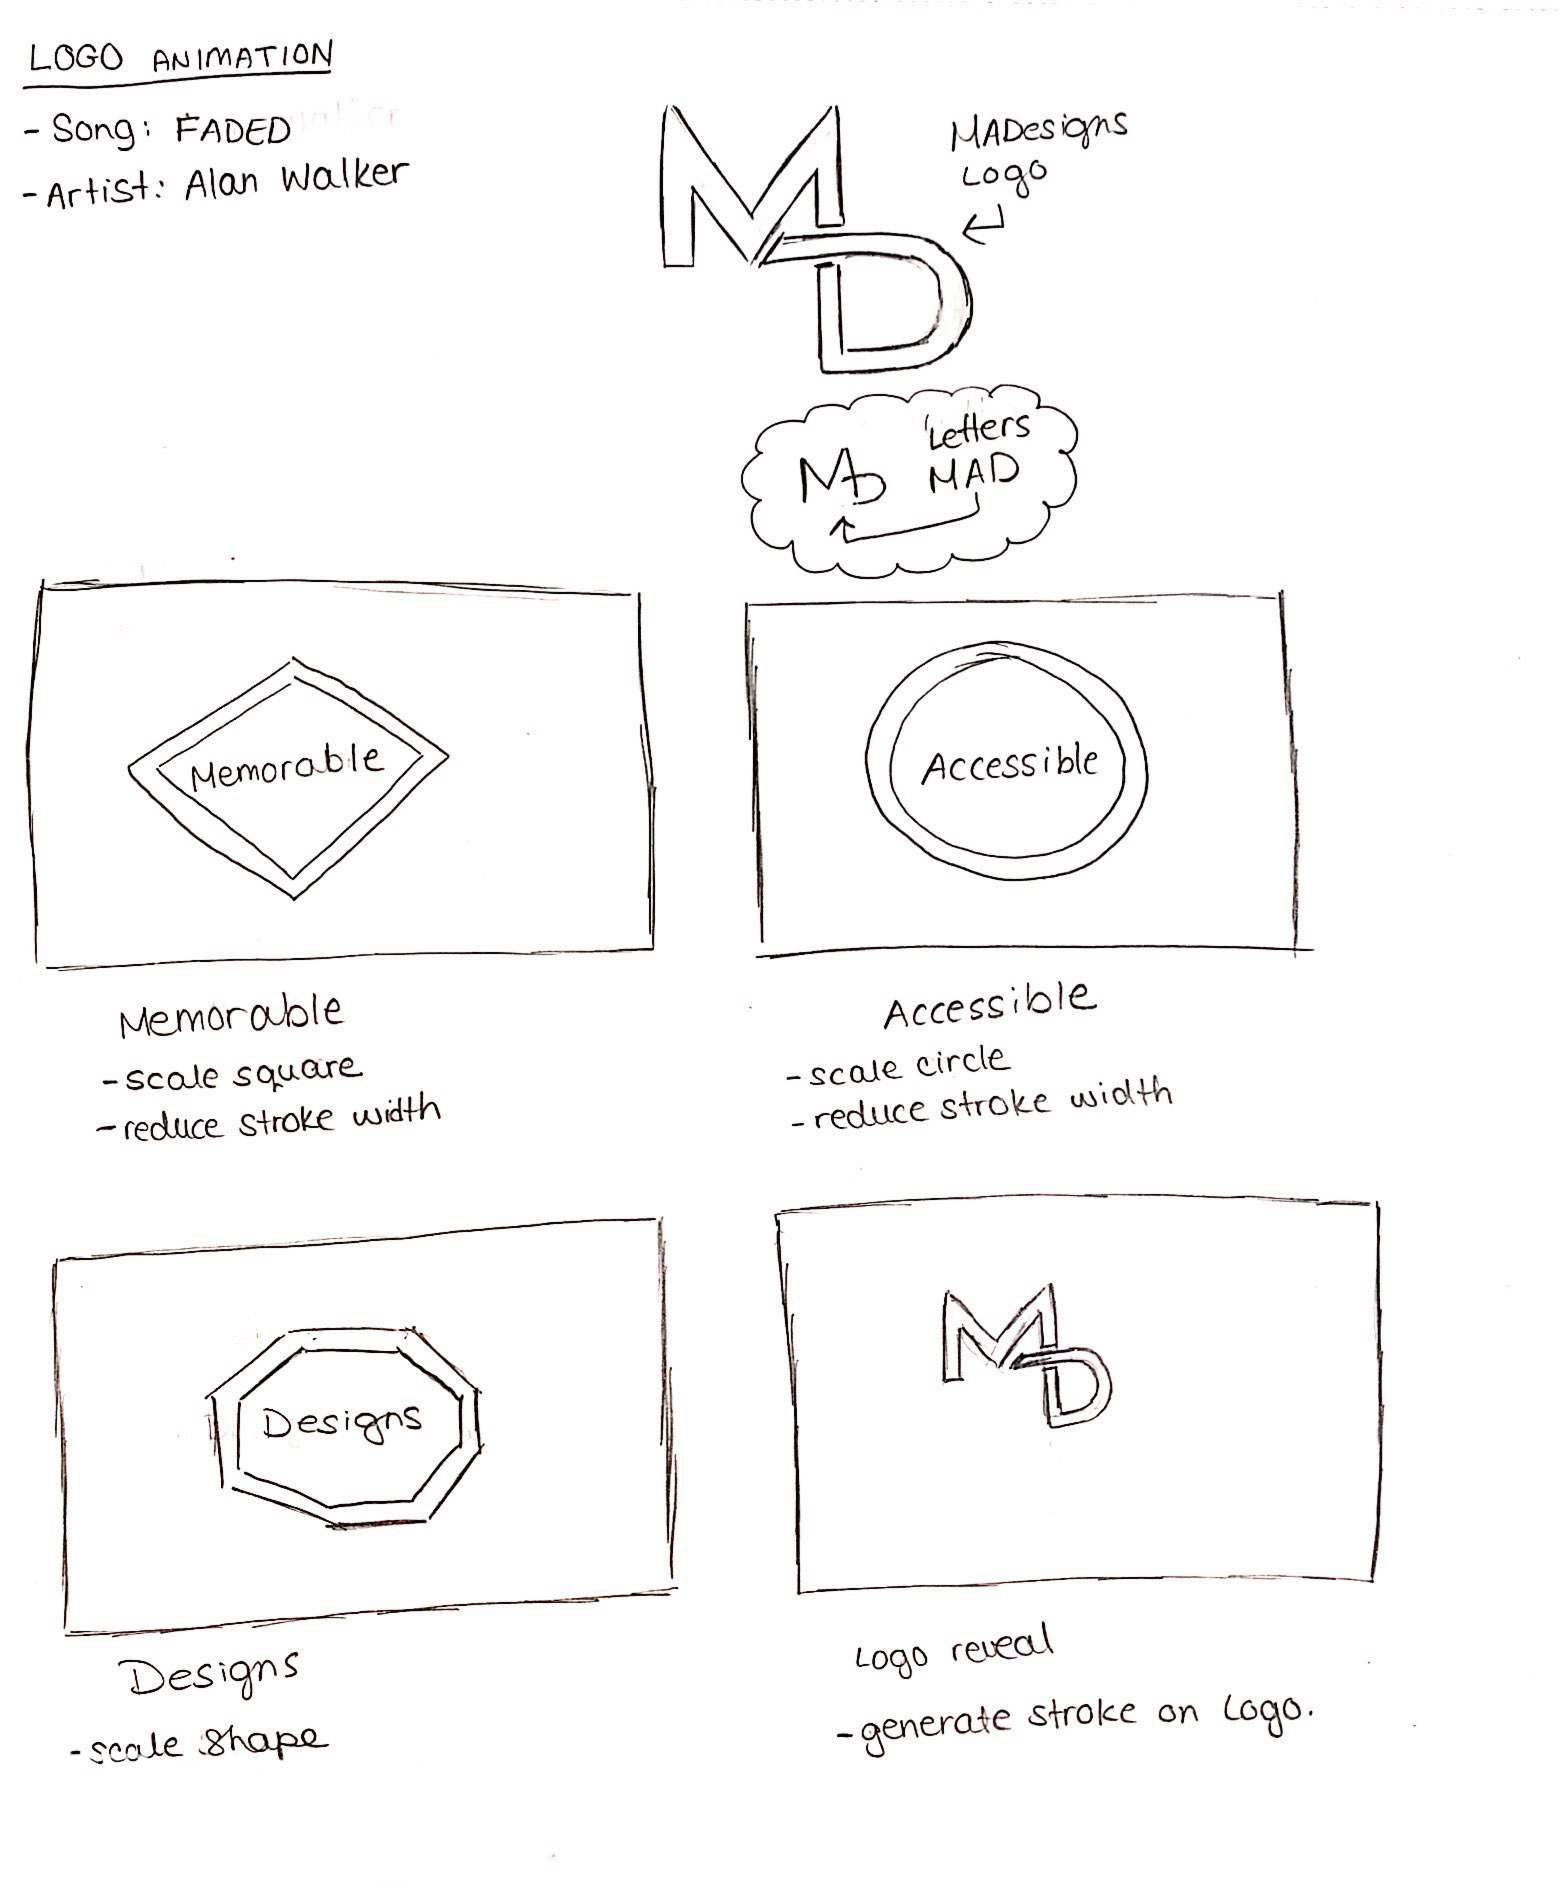 LOGO ANIMATION
- Song: FADED
- Artist: Alan Walker
MD
MADesigns
Logo
Letters
MD MAD
Memorable
Accessible
Memorable
- scale square
- reduce stroke width
Accessible
- scale circle
- reduce stroke width
Designs
MD
Designs
- scale shape
Logo reveal
- generate stroke on Logo.